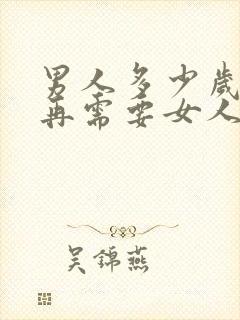 男人多少歲
再需要女人
吴錦燕